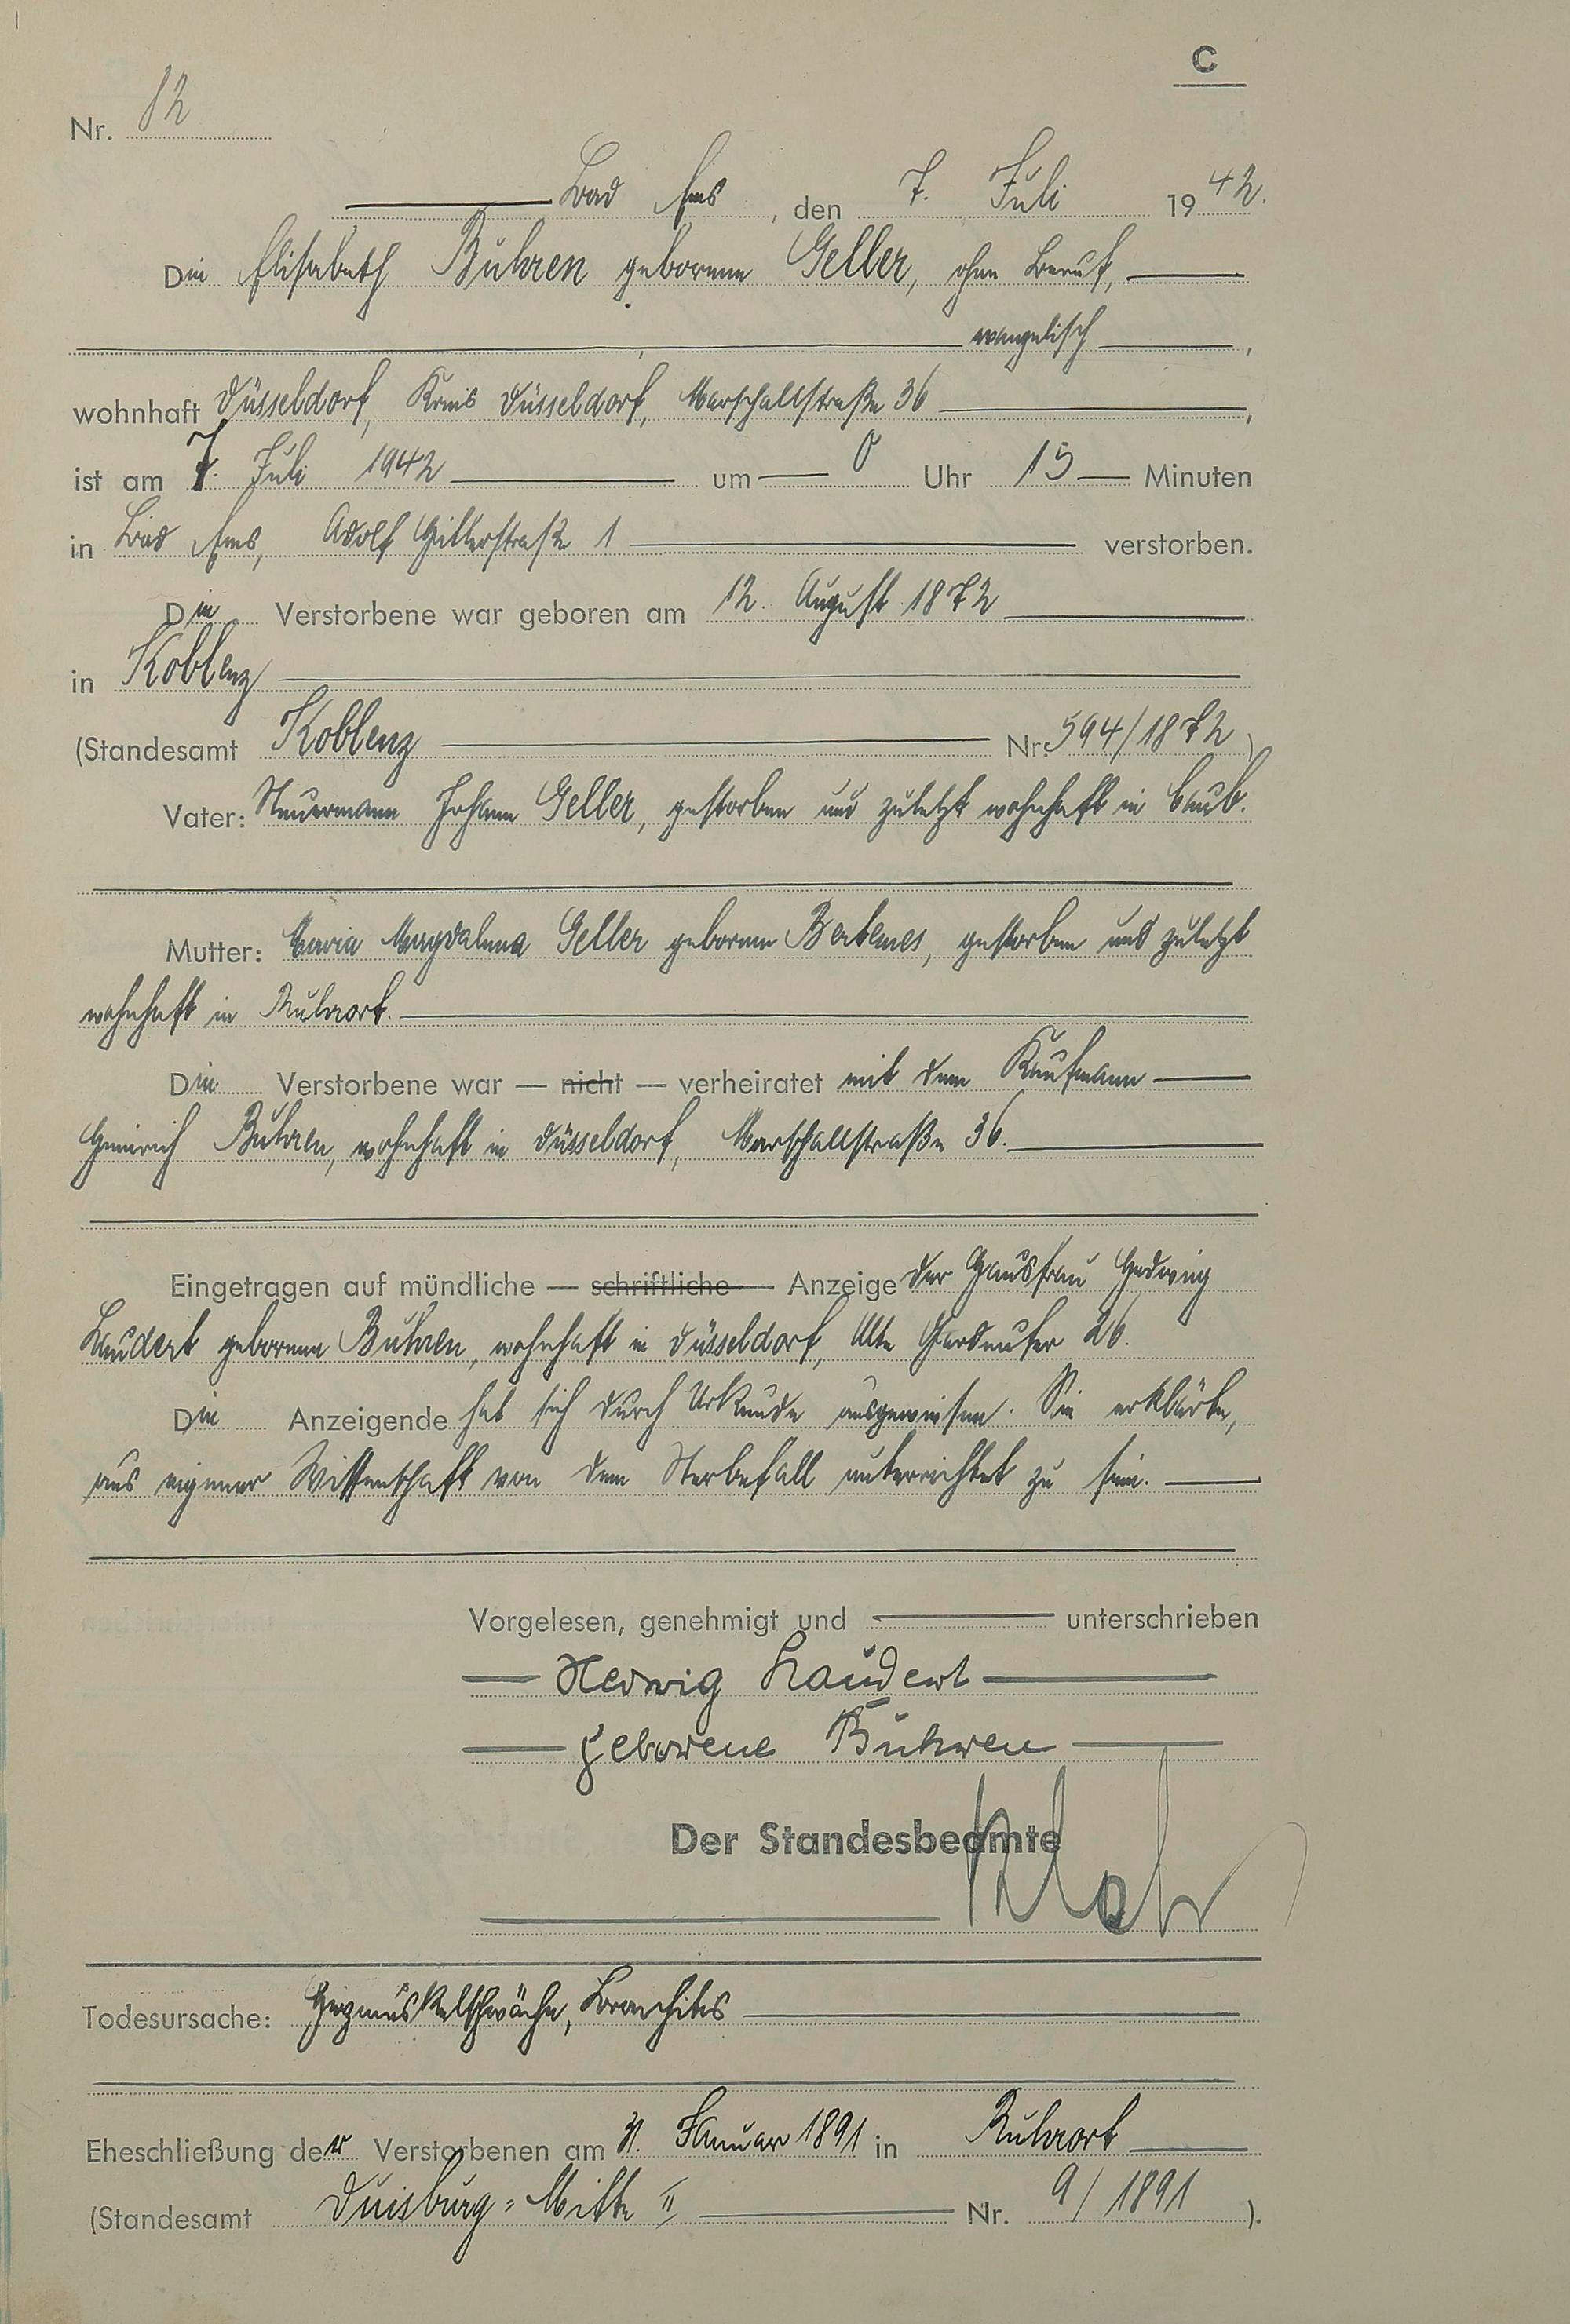 C
Nr. 82
Bad Ems, den 7. Juli 1942.
Die Elisabeth Buhren geborene Geller, ohne Beruf,
evangelisch,
wohnhaft Düsseldorf, Kreis Düsseldorf, Marschallstraße 36,
ist am 7. Juli 1942 um 0 Uhr 15 Minuten
in Bad Ems, Adolf Hitlerstraße 1 verstorben.
Die Verstorbene war geboren am 12. August 1872
in Koblenz
(Standesamt Koblenz Nr. 594/1872)
Vater: Steuermann Johann Geller, gestorben und zuletzt wohnhaft in Caub.
Mutter: Maria Magdalena Geller geborene, gestorben und zuletzt
wohnhaft in Ruhrort.
Die Verstorbene war — nicht — verheiratet mit dem Kaufmann
Heinrich Buhren, wohnhaft in Düsseldorf, Marschallstraße 36.
Eingetragen auf mündliche — schriftliche — Anzeige der Hausfrau Hedwig
Laudert geborene Buhren, wohnhaft in Düsseldorf, Alte Gardeufer 26.
Die Anzeigende hat sich durch Urkunde ausgewiesen. Sie erklärte,
aus eigener Wissenschaft von dem Sterbefall unterrichtet zu sein.
Vorgelesen, genehmigt und unterschrieben
Hedwig Laudert
geborene Buhren
Der Standesbeamte
Todesursache: Herzmuskelschwäche, Bronchitis
Eheschließung der Verstorbenen am 31. Januar 1891 in Ruhrort
(Standesamt Duisburg-Mitte II Nr. 9/1891).